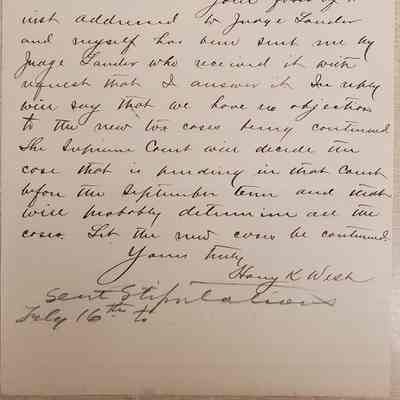 Your favor of
inst addressed to Judge Lander
and myself has been sent me by
Judge Lander who received it with
request that I answer it. In reply
will say that we have no objection
to the new tax cases being continued.
The Supreme Court will decide the
case that is pending in that Court
before the September term and that
will probably determine all the
cases. Let the new cases be continued.
Yours truly
Harry K West
Sent Stipulations
July 16th to